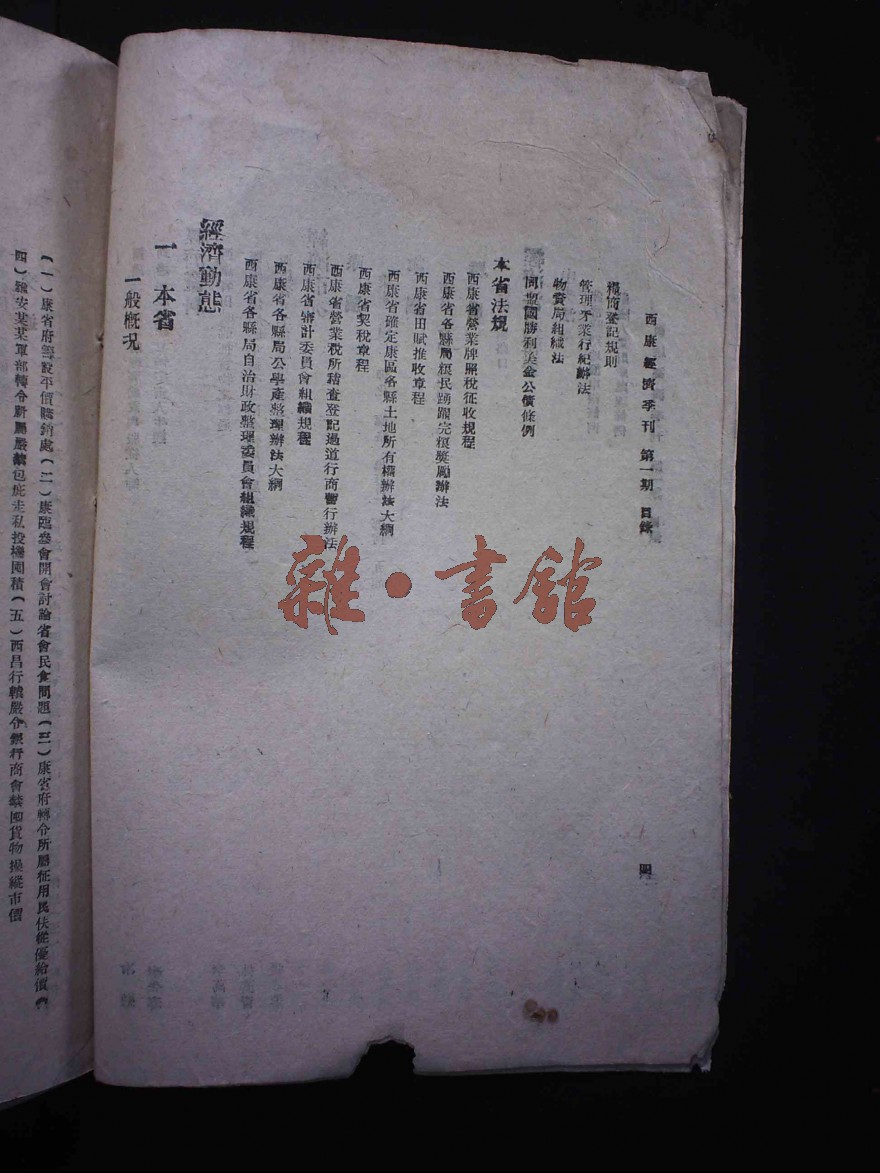 西康經濟季刊 第一期 目錄
四
糧商登記規則
管理牙業行紀辦法
物資局組織法
同盟國勝利美金公債條例
本省法規
西康省營業牌照稅征收規程
西康省各縣局糧民踴躍完糧獎勵辦法
西康省田賦推收章程
西康省確定康區各縣土地所有權辦法大綱
西康省契稅章程
西康省營業稅所稽查登記過道行商暫行辦法
西康省審計委員會組織規程
西康省各縣局公學產整理辦法大綱
西康省各縣局自治財政整理委員會組織規程
經濟動態
一 本省
一般概况
(一)康省府籌設平價購銷處(二)康臨參會開會討論省會民食問題(三)康省府轉令所屬征用民伕從優給價(
四)雅安某某軍部轉令所屬嚴禁包庇走私投機囤積(五)西昌行轅嚴令銀行商會禁囤貨物操縱市價
雜·書館